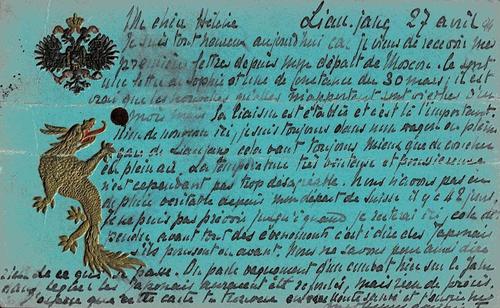 Ma chère Hélène Liau-jang, 27 avril
Je suis tout heureux aujourd'hui car je viens de recevoir mes
premières lettres depuis mon départ de Moscou. Ce sont
une lettre de Sophie et une de Constance du 30 mars; il est
vrai que les nouvelles qu'elles m'apportent sont vieilles d'un
mois mais la liaison est établie et c'est là l'important.
Rien de nouveau ici, je suis toujours dans mon wagon en pleine
gare de Liaujang cela vaut toujours mieux que de coucher
en plein air. La température très venteuse et poussiéreuse
n'est cependant pas trop désagréable. Nous n'avons pas eu
de pluie véritable depuis mon départ de Suisse il y a 42 jours.
Je ne puis pas prévoir jusqu'à quand je resterai ici, cela dé-
pendra avant tout des événements c'est à dire des Japonais
s'ils poussent en avant. Nous ne savons rien ainsi dire
de ce qui se passe. On parle vaguement d'un combat hier sur le Jalu
dans lequel les Japonais auraient été repoussés, mais rien de précis.
J'espère que cette carte te trouvera en excellente santé et